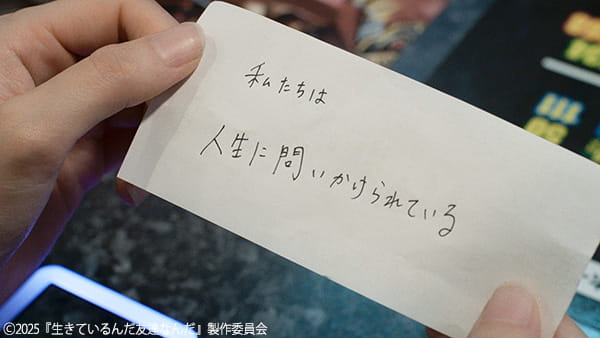 私たちは
人生に問いかけられている
©2025『生きているんだ友達なんだ』製作委員会